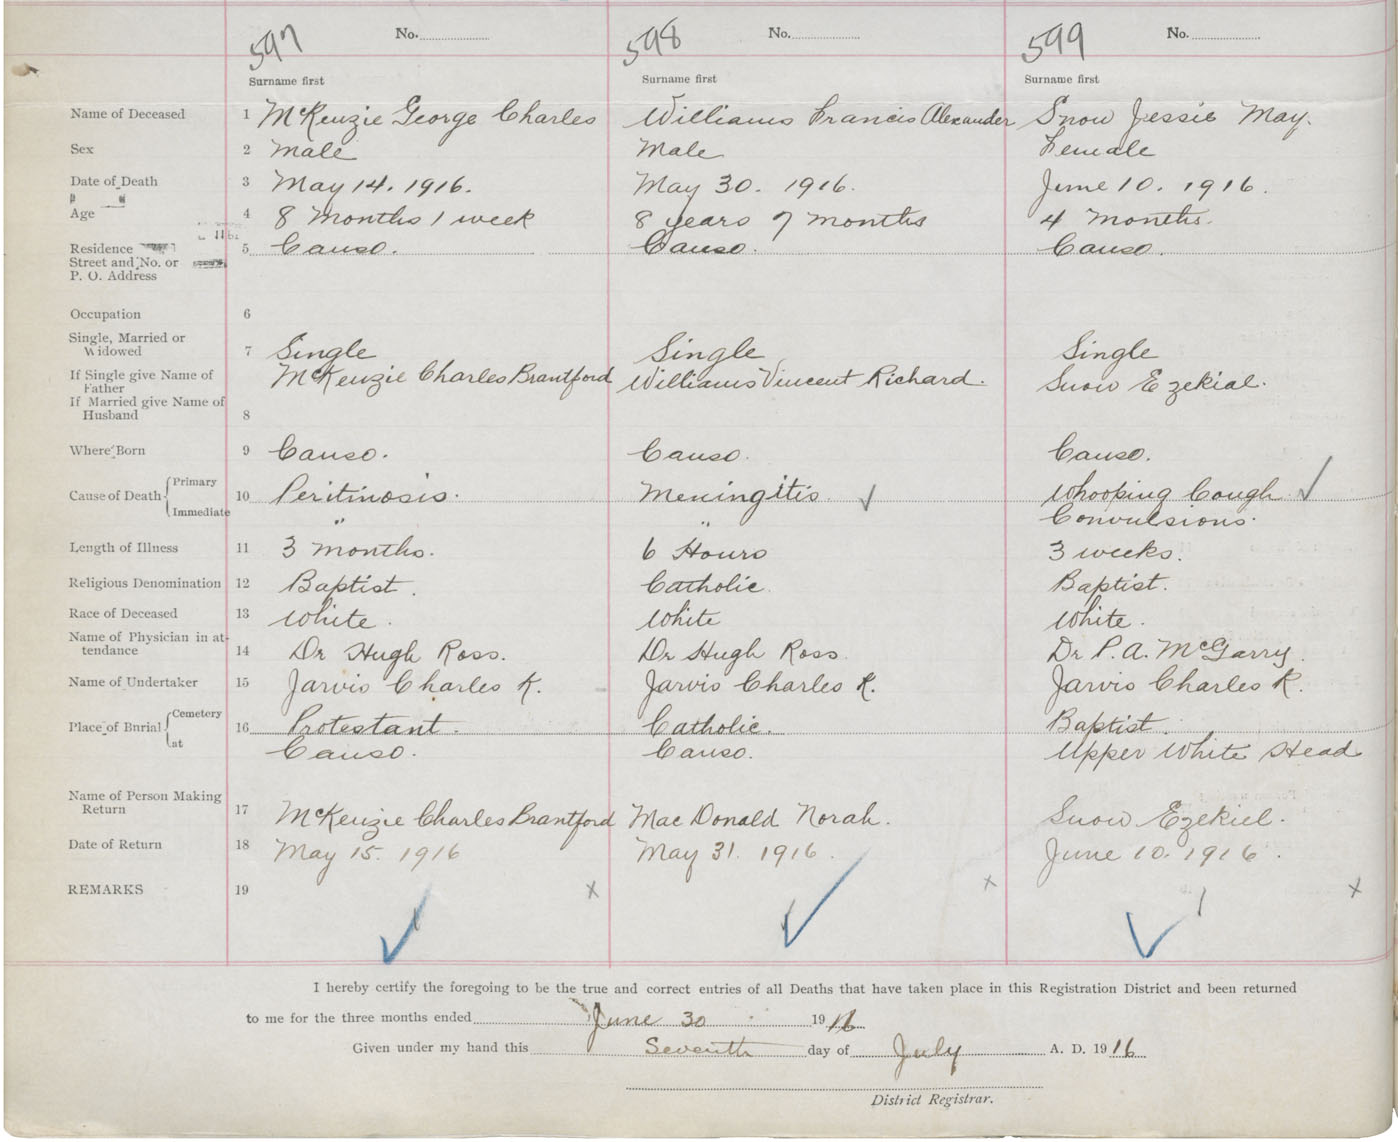 597 No. 598 No. 599 No.
Surname first Surname first Surname first
Name of Deceased 1 McKenzie George Charles Williams Francis Alexander Snow Jessie May.
Sex 2 Male Male Female
Date of Death 3 May 14. 1916. May 30. 1916. June 10. 1916.
" "
Age 4 8 Months 1 week 8 years 7 months 4 months.
Residence 5 Canso. Canso. Canso.
Street and No. or
P. O. Address
Occupation 6
Single, Married or
Widowed 7 Single Single Single
If Single give Name of
Father McKenzie Charles Brantford Williams Vincent Richard. Snow Ezekial.
If Married give Name of
Husband 8
Where Born 9 Canso. Canso. Canso.
Cause of Death { Primary 10 Peritinosis. Meningitis. Whooping Cough
Immediate " " Convulsions.
Length of Illness 11 3 months. 6 Hours 3 weeks.
Religious Denomination 12 Baptist. Catholic. Baptist.
Race of Deceased 13 White. White White.
Name of Physician in at-
tendance 14 Dr Hugh Ross. Dr Hugh Ross. Dr P. A. McGarry.
Name of Undertaker 15 Jarvis Charles K. Jarvis Charles K. Jarvis Charles K.
Place of Burial { Cemetery 16 Protestant. Catholic. Baptist.
at Canso. Canso. Upper White Head
Name of Person Making
Return 17 McKenzie Charles Brantford Mac Donald Norah. Snow Ezekiel.
Date of Return 18 May 15. 1916 May 31. 1916. June 10. 1916.
REMARKS 19 x x x
I hereby certify the foregoing to be the true and correct entries of all Deaths that have taken place in this Registration District and been returned
to me for the three months ended June 30 1916
Given under my hand this Seventh day of July A. D. 1916
District Registrar.